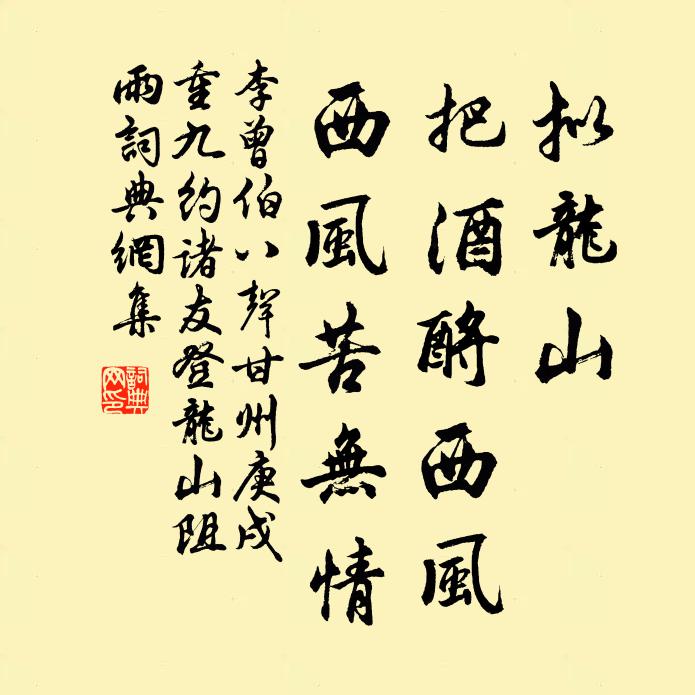 拟龍山
把酒酹西風
西風苦無情
李曾伯八聲甘州庚戌
重九约诸友登龍山阻
雨詞典網集
詞典網印